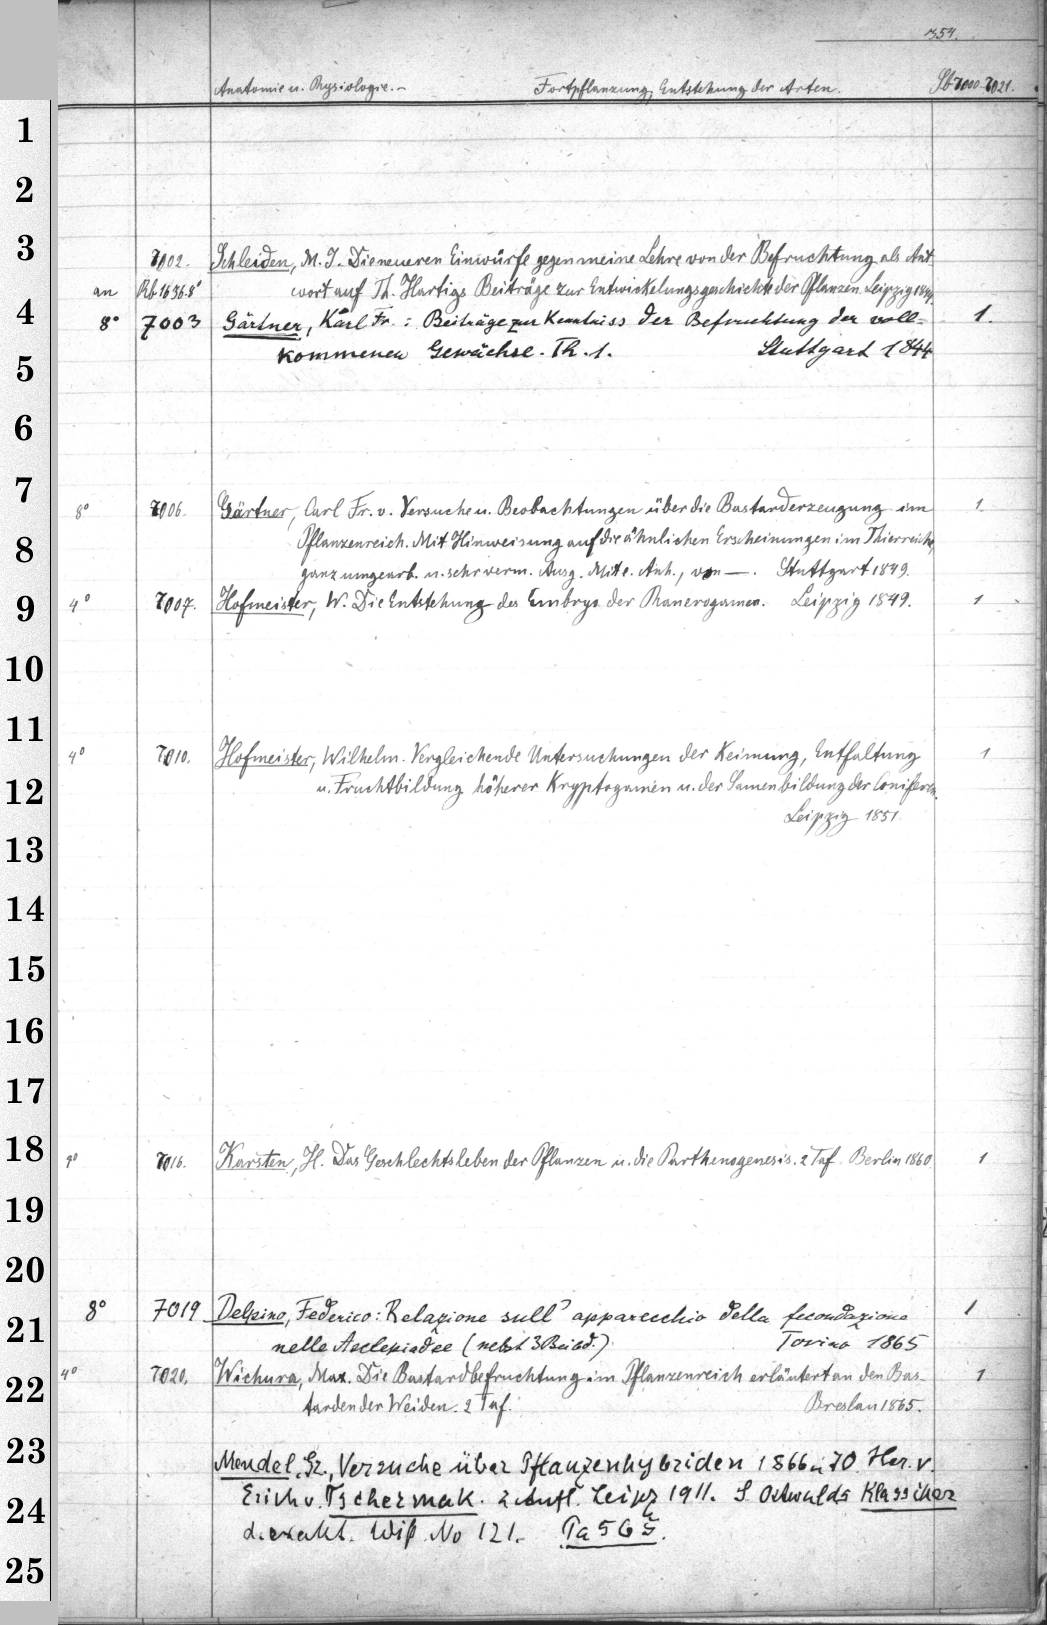 354.
Anatomie u. Physiologie. - Fortpflanzung, Entstehung der Arten. Sb 7000-7021.
1
2
3
7002. Schleiden, M. J. Die neueren Einwürfe gegen meine Lehre von der Befruchtung als Ant
an Rb. 1636.8° wort auf Th. Hartigs Beiträge zur Entwickelungsgeschichte der Pflanzen. Leipzig 1844.
4 8° 7003 Gärtner, Karl Fr.: Beiträge zur Kenntniss der Befruchtung der voll- 1.
kommenen Gewächse. Th. 1. Stuttgart 1844
5
6
7
8° 7006. Gärtner, Carl Fr. v. Versuche u. Beobachtungen über die Bastarderzeugung im 1.
8 Pflanzenreich. Mit Hinweisung auf die ähnlichen Erscheinungen im Thierreiche,
ganz umgearb. u. sehr verm. Ausg. Mit e. Anh., von —. Stuttgart 1849.
9 4° 7007. Hofmeister, W. Die Entstehung des Embryo der Phanerogamen. Leipzig 1849. 1
10
11
4° 7010. Hofmeister, Wilhelm. Vergleichende Untersuchungen der Keimung, Entfaltung 1
12 u. Fruchtbildung höherer Kryptogamen u. der Samenbildung der Coniferen.
Leipzig 1851.
13
14
15
16
17
18 7016. Karsten, H. Das Geschlechtsleben der Pflanzen u. die Parthenogenesis. 2 Taf. Berlin 1860 1
19
20
8° 7019 Delpino, Federico: Relazione sull' apparecchio della fecondazione 1
21 nelle Asclepiadee (nebst 3 Beibd.) Torino 1865
22 4° 7020. Wichura, Max. Die Bastardbefruchtung im Pflanzenreich erläutert an den Bas- 1
tarden der Weiden. 2 Taf. Breslau 1865.
23 Mendel, Gr., Versuche über Pflanzenhybriden 1866 u. 70. Her. v.
24 Erich v. Tschermak. 2 Aufl. Leipz 1911. S. Ostwalds Klassiker
d. exakt. Wiß. No 121. Ta 565.
25